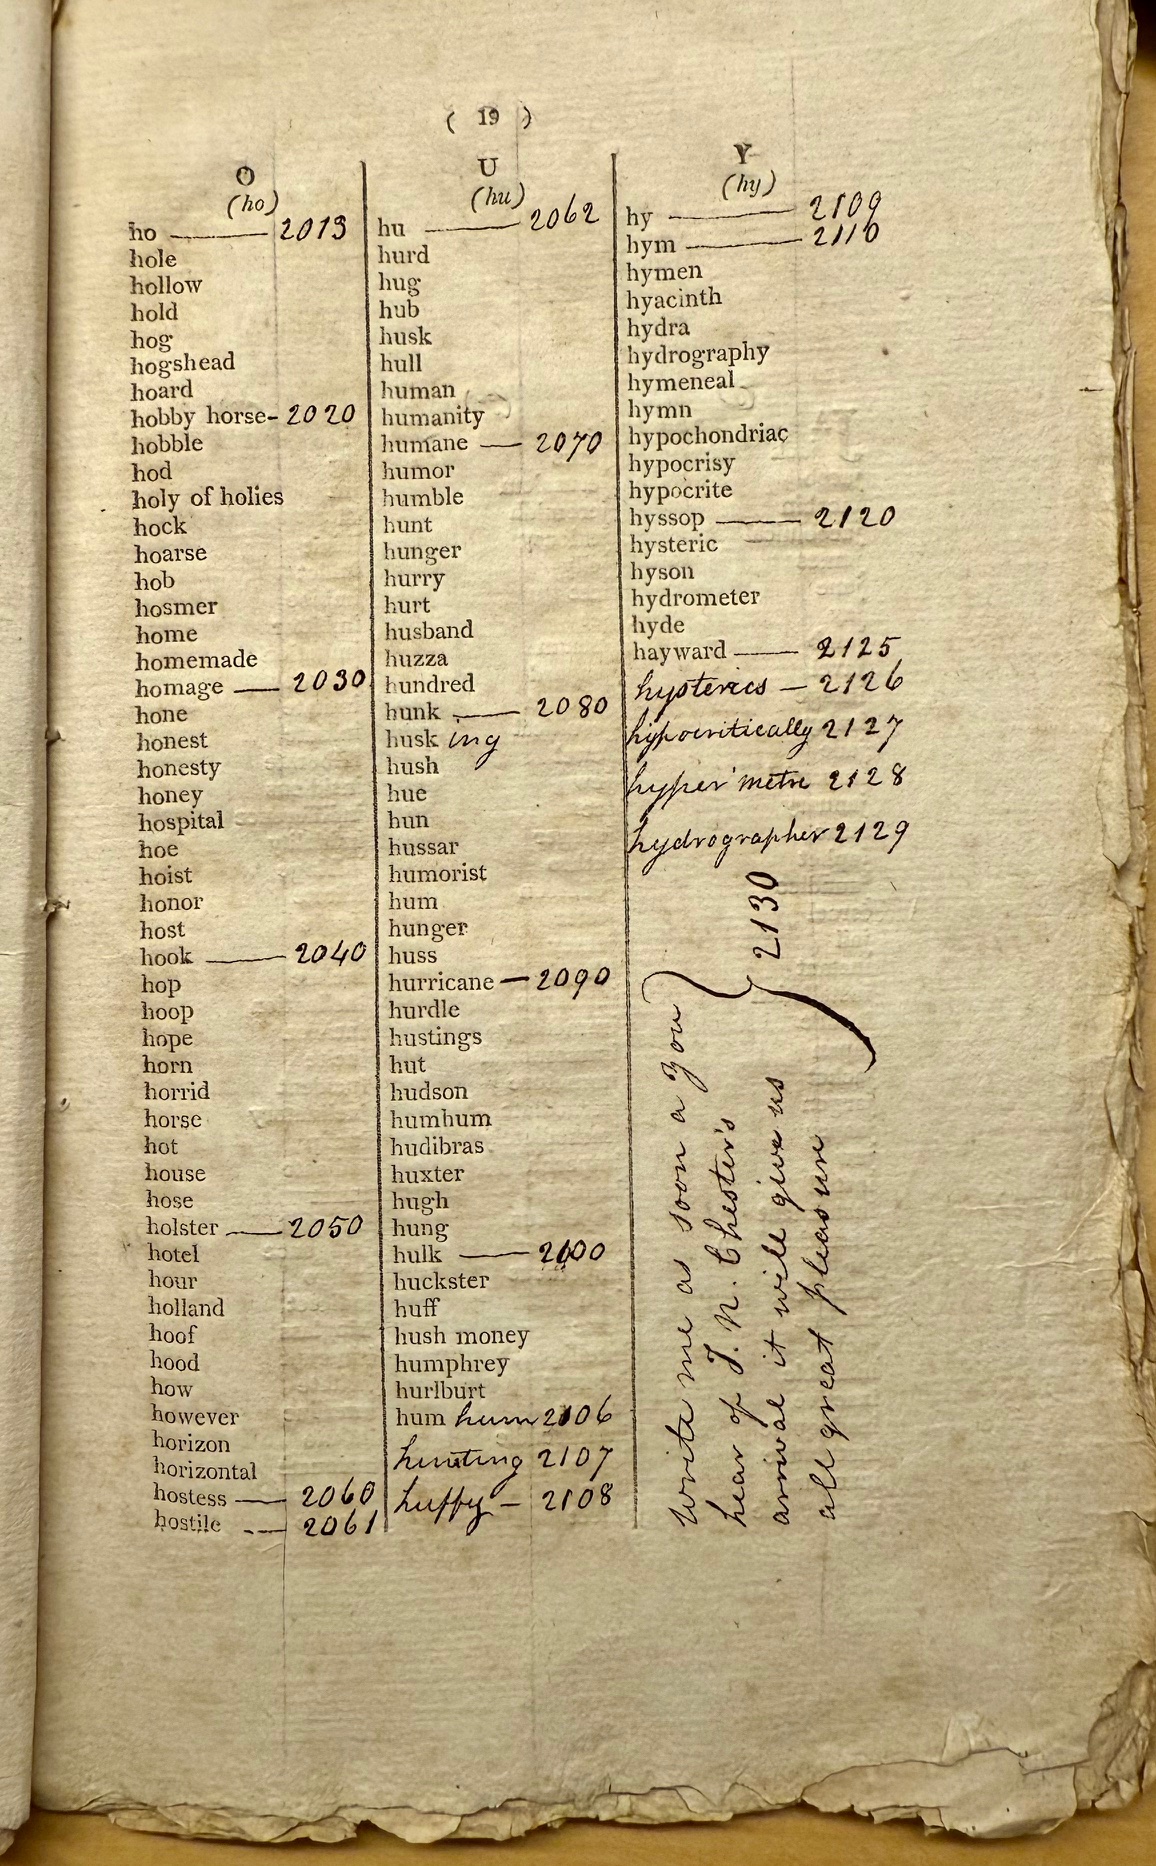 ( 19 )
O
(ho)
ho — 2013
hole
hollow
hold
hog
hogshead
hoard
hobby horse - 2020
hobble
hod
holy of holies
hock
hoarse
hob
hosmer
home
homemade
homage — 2030
hone
honest
honesty
honey
hospital
hoe
hoist
honor
host
hook — 2040
hop
hoop
hope
horn
horrid
horse
hot
house
hose
holster — 2050
hotel
hour
holland
hoof
hood
how
however
horizon
horizontal
hostess — 2060
hostile — 2061
U
(hu)
hu — 2062
hurd
hug
hub
husk
hull
human
humanity
humane — 2070
humor
humble
hunt
hunger
hurry
hurt
husband
huzza
hundred
hunk — 2080
husk ing
hush
hue
hun
hussar
humorist
hum
hunger
huss
hurricane — 2090
hurdle
hustings
hut
hudson
humhum
hudibras
huxter
hugh
hung
hulk — 2100
huckster
huff
hush money
humphrey
hurlburt
hum hum 2106
hunting 2107
huffy — 2108
Y
(hy)
hy — 2109
hym — 2110
hymen
hyacinth
hydra
hydrography
hymeneal
hymn
hypochondriac
hypocrisy
hypocrite
hyssop — 2120
hysteric
hyson
hydrometer
hyde
hayward — 2125
hysterics — 2126
hypocritically 2127
hyper'metre 2128
hydrographer 2129
write me as soon a you
hear of J. N. Chester's
arrival it will give us
all great pleasure
2130